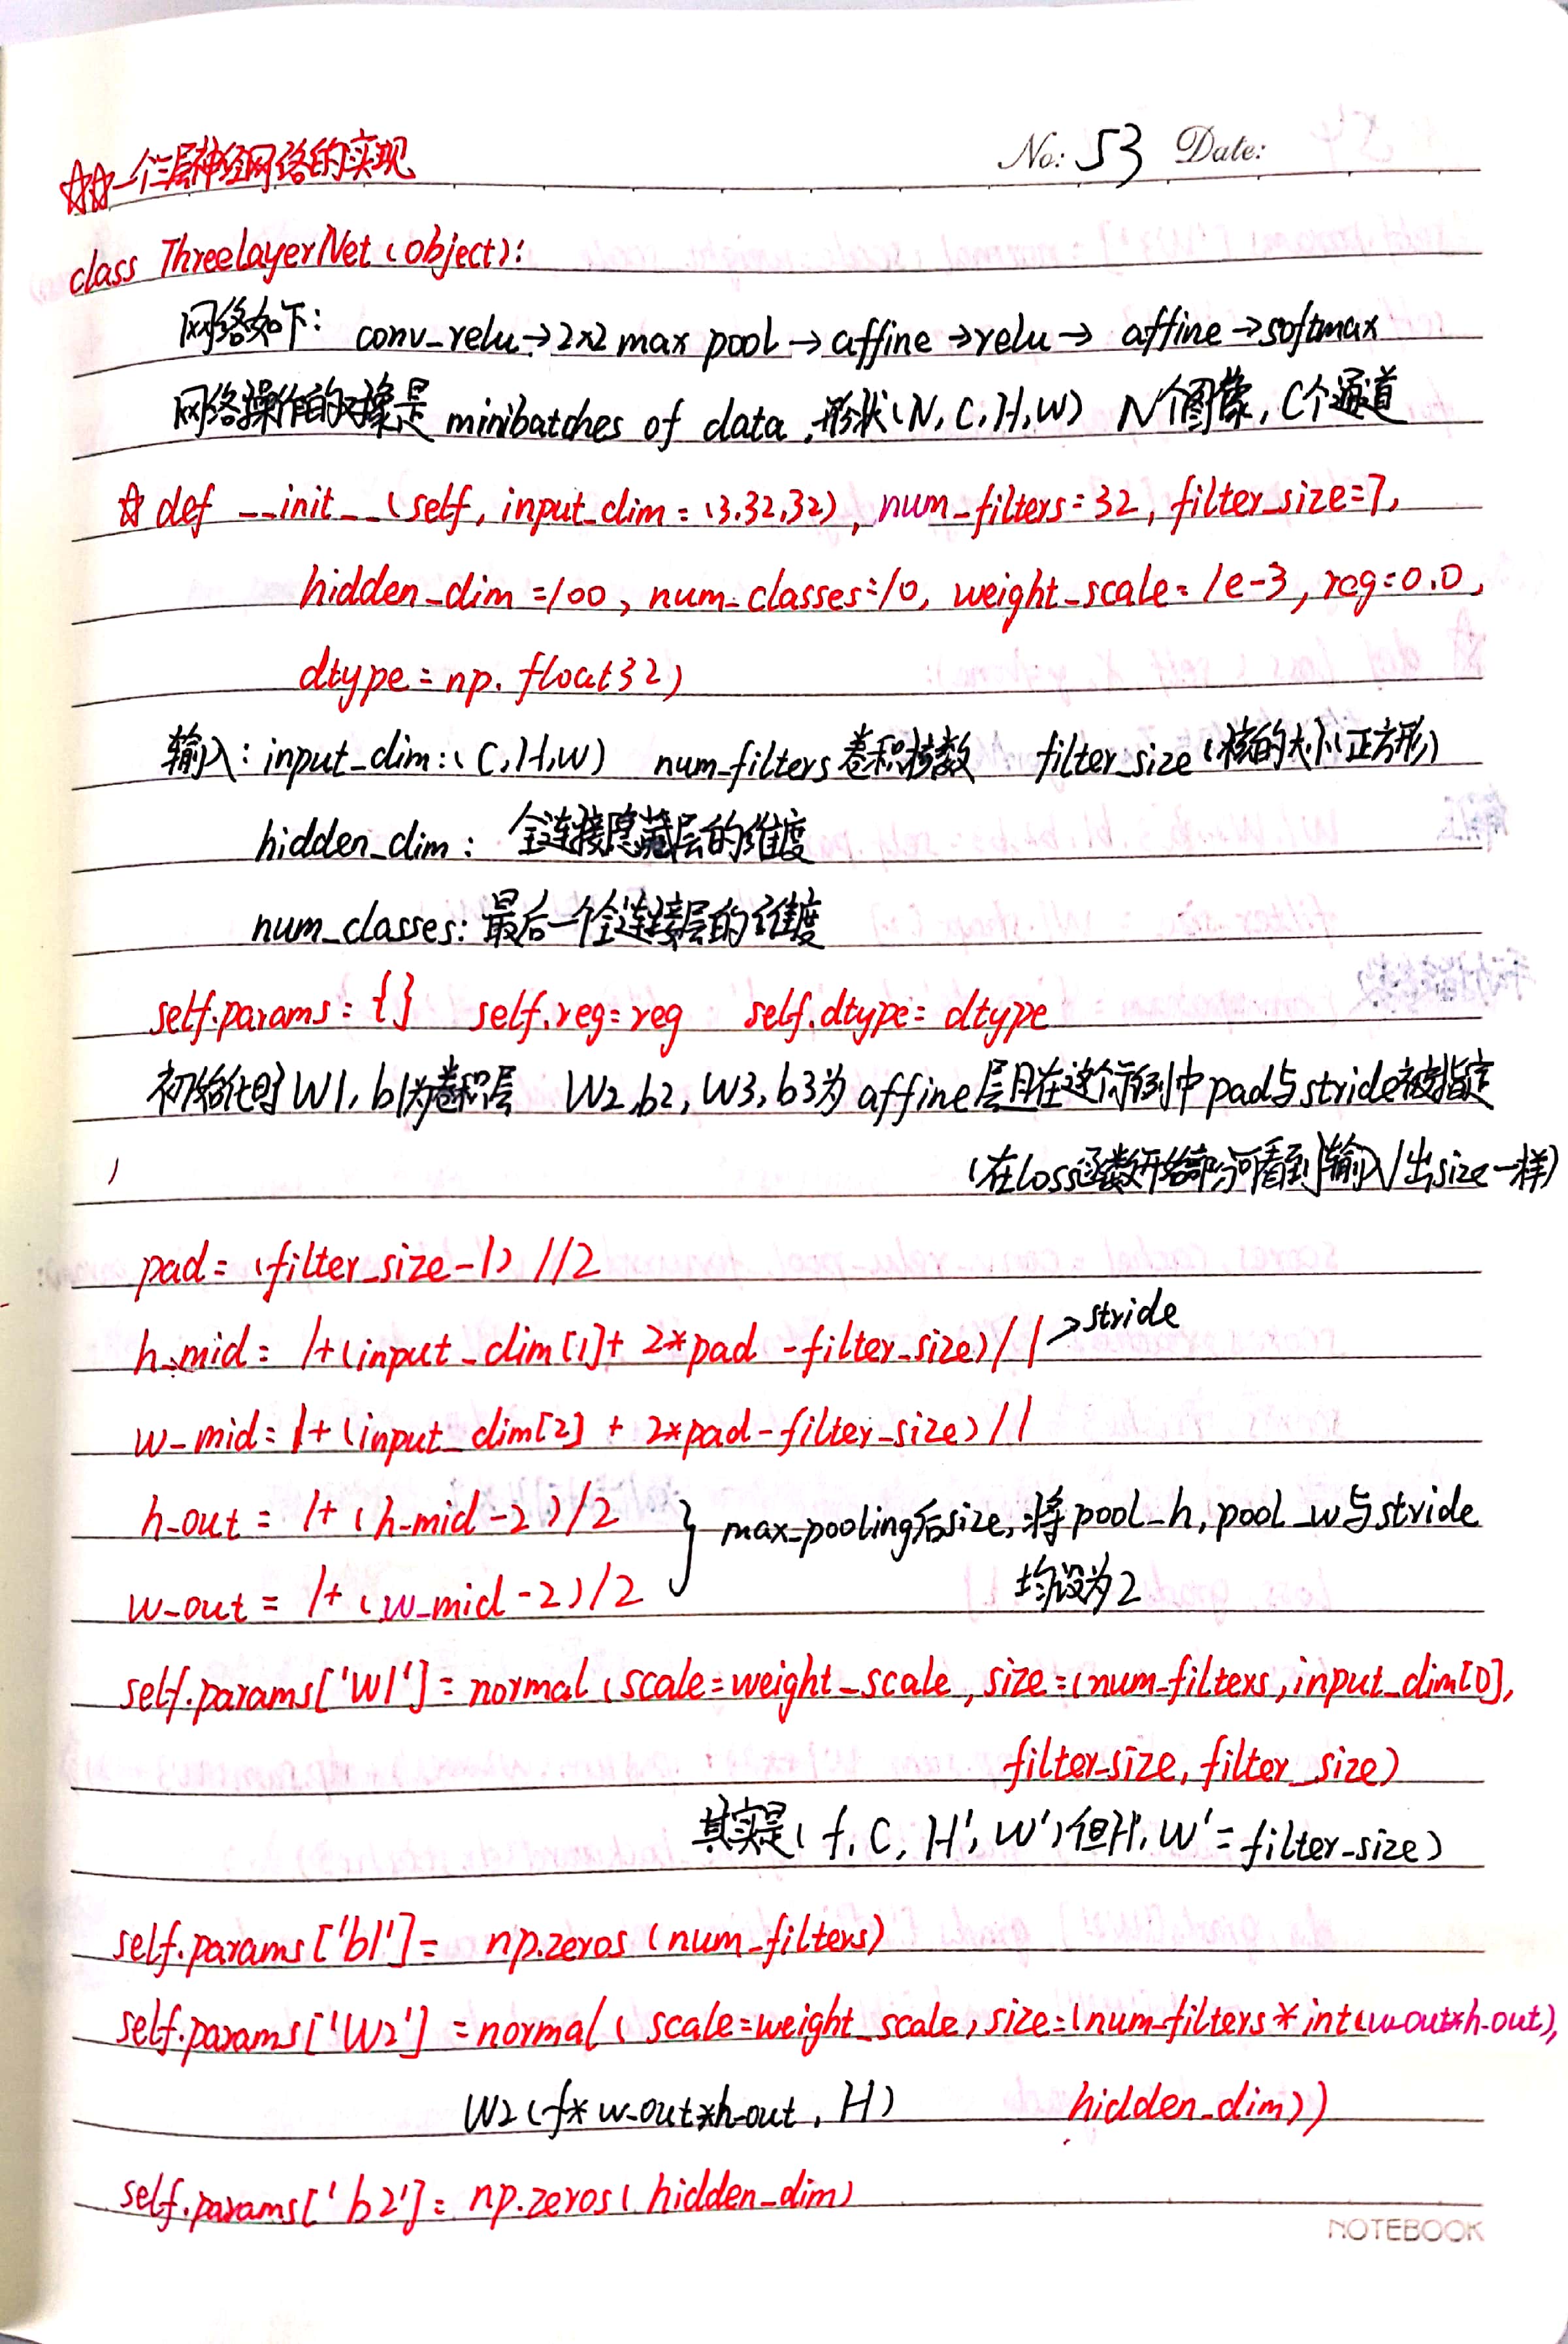 No: 53 Date:
☆☆一个三层神经网络的实现
class ThreelayerNet(object):
网络如下: conv_relu→2×2 max pool→affine→relu→ affine→softmax
网络操作的对象是 minibatches of data,形状(N,C,H,W) N个图像,C个通道
☆ def __init__(self, input_dim=(3,32,32), num_filters=32, filter_size=7,
hidden_dim=100, num_classes=10, weight_scale=1e-3, reg=0.0,
dtype=np.float32)
输入: input_dim:(C,H,W) num_filters卷积核数 filter_size(核的大小(正方形)
hidden_dim: 全连接隐藏层的维度
num_classes: 最后一个全连接层的维度
self.params={} self.reg=reg self.dtype=dtype
初始化时W1,b1为卷积层 W2,b2,W3,b3为affine层且在这个示例中pad与stride被指定
(在Loss函数开始部分可看到输入/出size一样)
pad=(filter_size-1)//2
h_mid=1+(input_dim[1]+2*pad-filter_size)/1→stride
w_mid=1+(input_dim[2]+2*pad-filter_size)/1
h_out=1+(h_mid-2)/2 } max_pooling后size,将pool_h,pool_w与stride
w_out=1+(w_mid-2)/2 均设为2
self.params['W1']=normal(scale=weight_scale,size=(num_filters,input_dim[0],
filter_size,filter_size)
其实是(f,C,H',W')但H',W'=filter_size)
self.params['b1']= np.zeros(num_filters)
self.params['W2']=normal(scale=weight_scale,size=(num_filters*int(w_out*h_out),
W2(f*w_out*h_out,H) hidden_dim))
self.params['b2']=np.zeros(hidden_dim)
NOTEBOOK